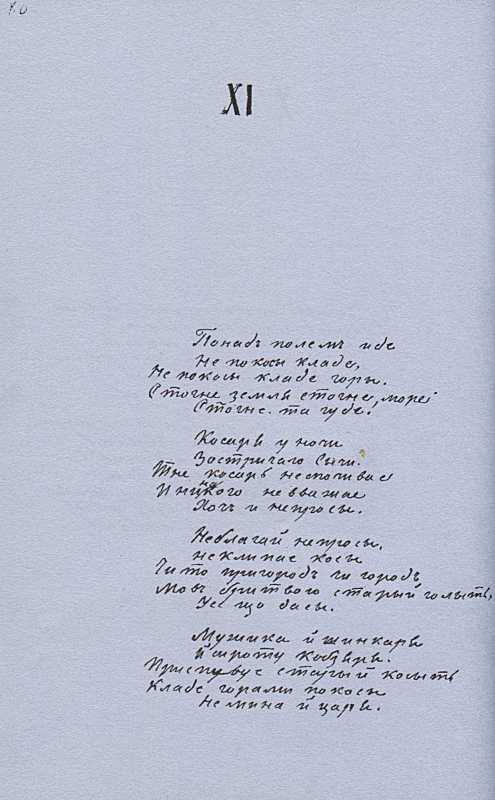 XI
Понадъ полемъ иде
Не покосы кладе,
Не покосы кладе горы.
Стогне земля стогне, море
Стогне. та гуде.
Косаря у ночи
Зострічаго Сычи.
Тне косарь неспочивае
И ні на кого невважае
Хочъ и непросы.
Неблагай непросы,
неклипае косы
Чи то пригородъ чи городъ
Мовъ бритвою старый голыть,
Усе що дасы.
Мужика й шинкаря
Й сироту кобзаря.
Приспівує старый косыть
Кладе горами покосы
Не мина й царя.